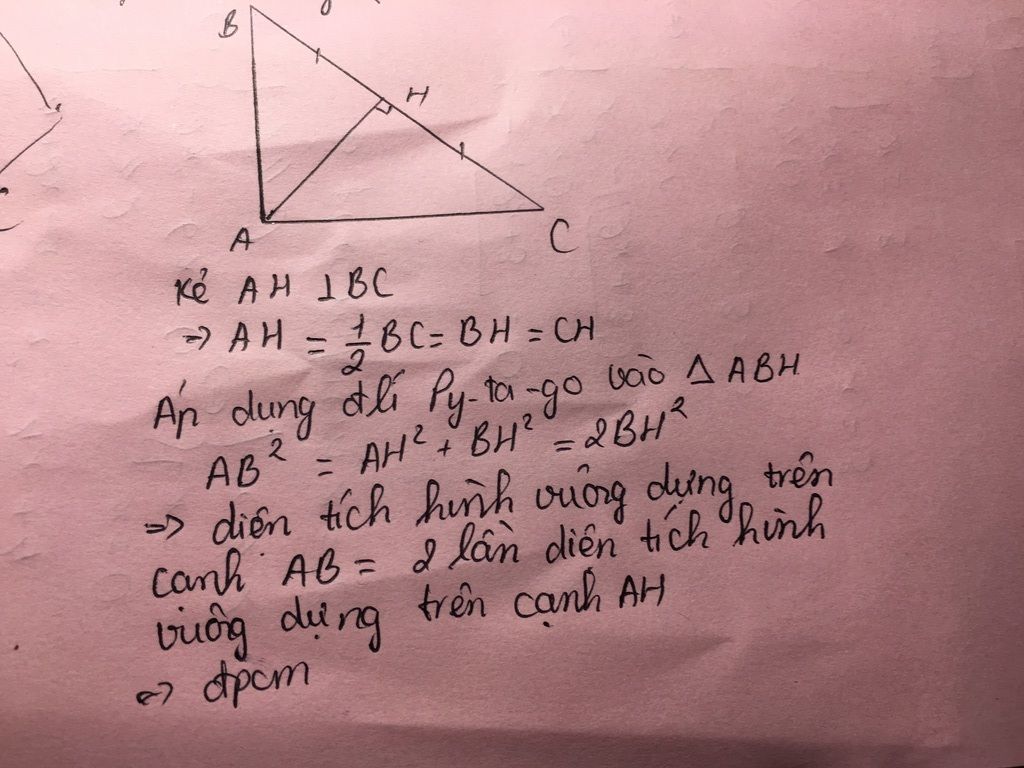 B
H
A
C
Kẻ AH ⊥ BC
=> AH = 1/2 BC = BH = CH
Áp dụng đlí Py-ta-go vào Δ ABH
AB² = AH² + BH² = 2BH²
=> diện tích hình vuông dựng trên
cạnh AB = 2 lần diện tích hình
vuông dựng trên cạnh AH
=> đpcm